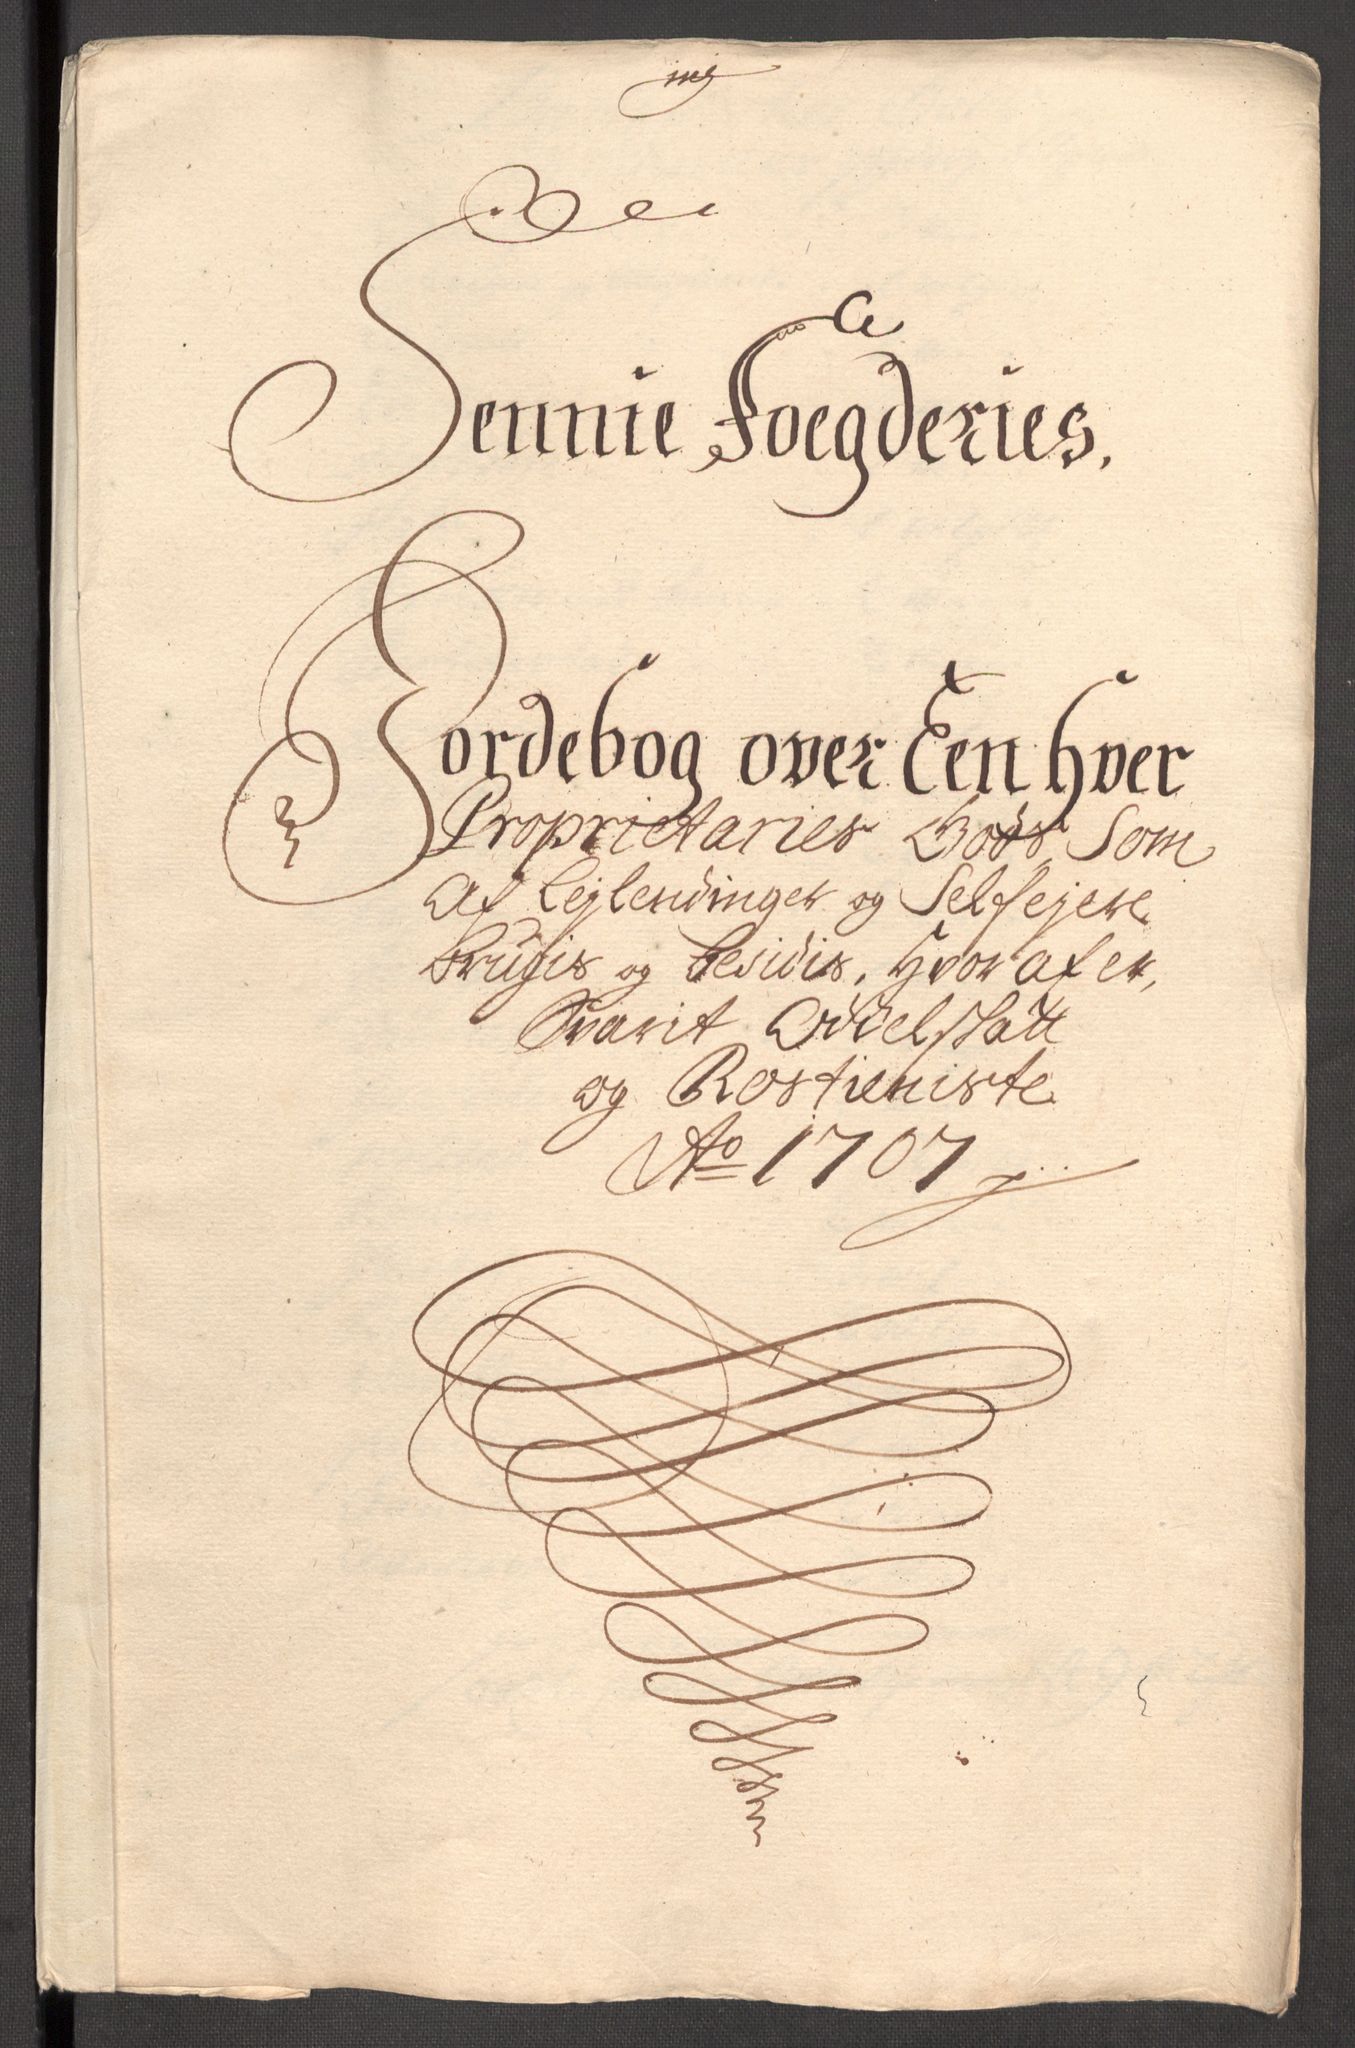 Sennie Foegderies.
Jordebog over Een hver
Proprietaries Gods Som
Af Lejlendinger og Selfejere
brugis og besidis, hvor af er,
Svarit Oddelskatt
og Rostieniste
Ao 1707